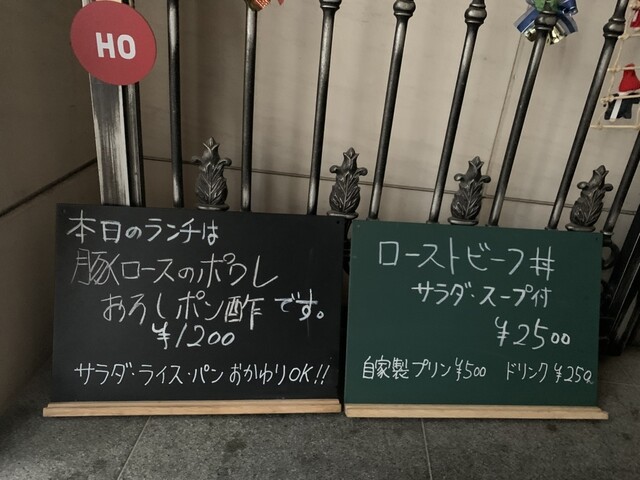 HO
本日のランチは
豚ロースのポワレ
おろしポン酢です。
¥1200
サラダ・ライス・パンおかわりOK!!
ローストビーフ丼
サラダ・スープ付
¥2500
自家製プリン¥500 ドリンク¥250